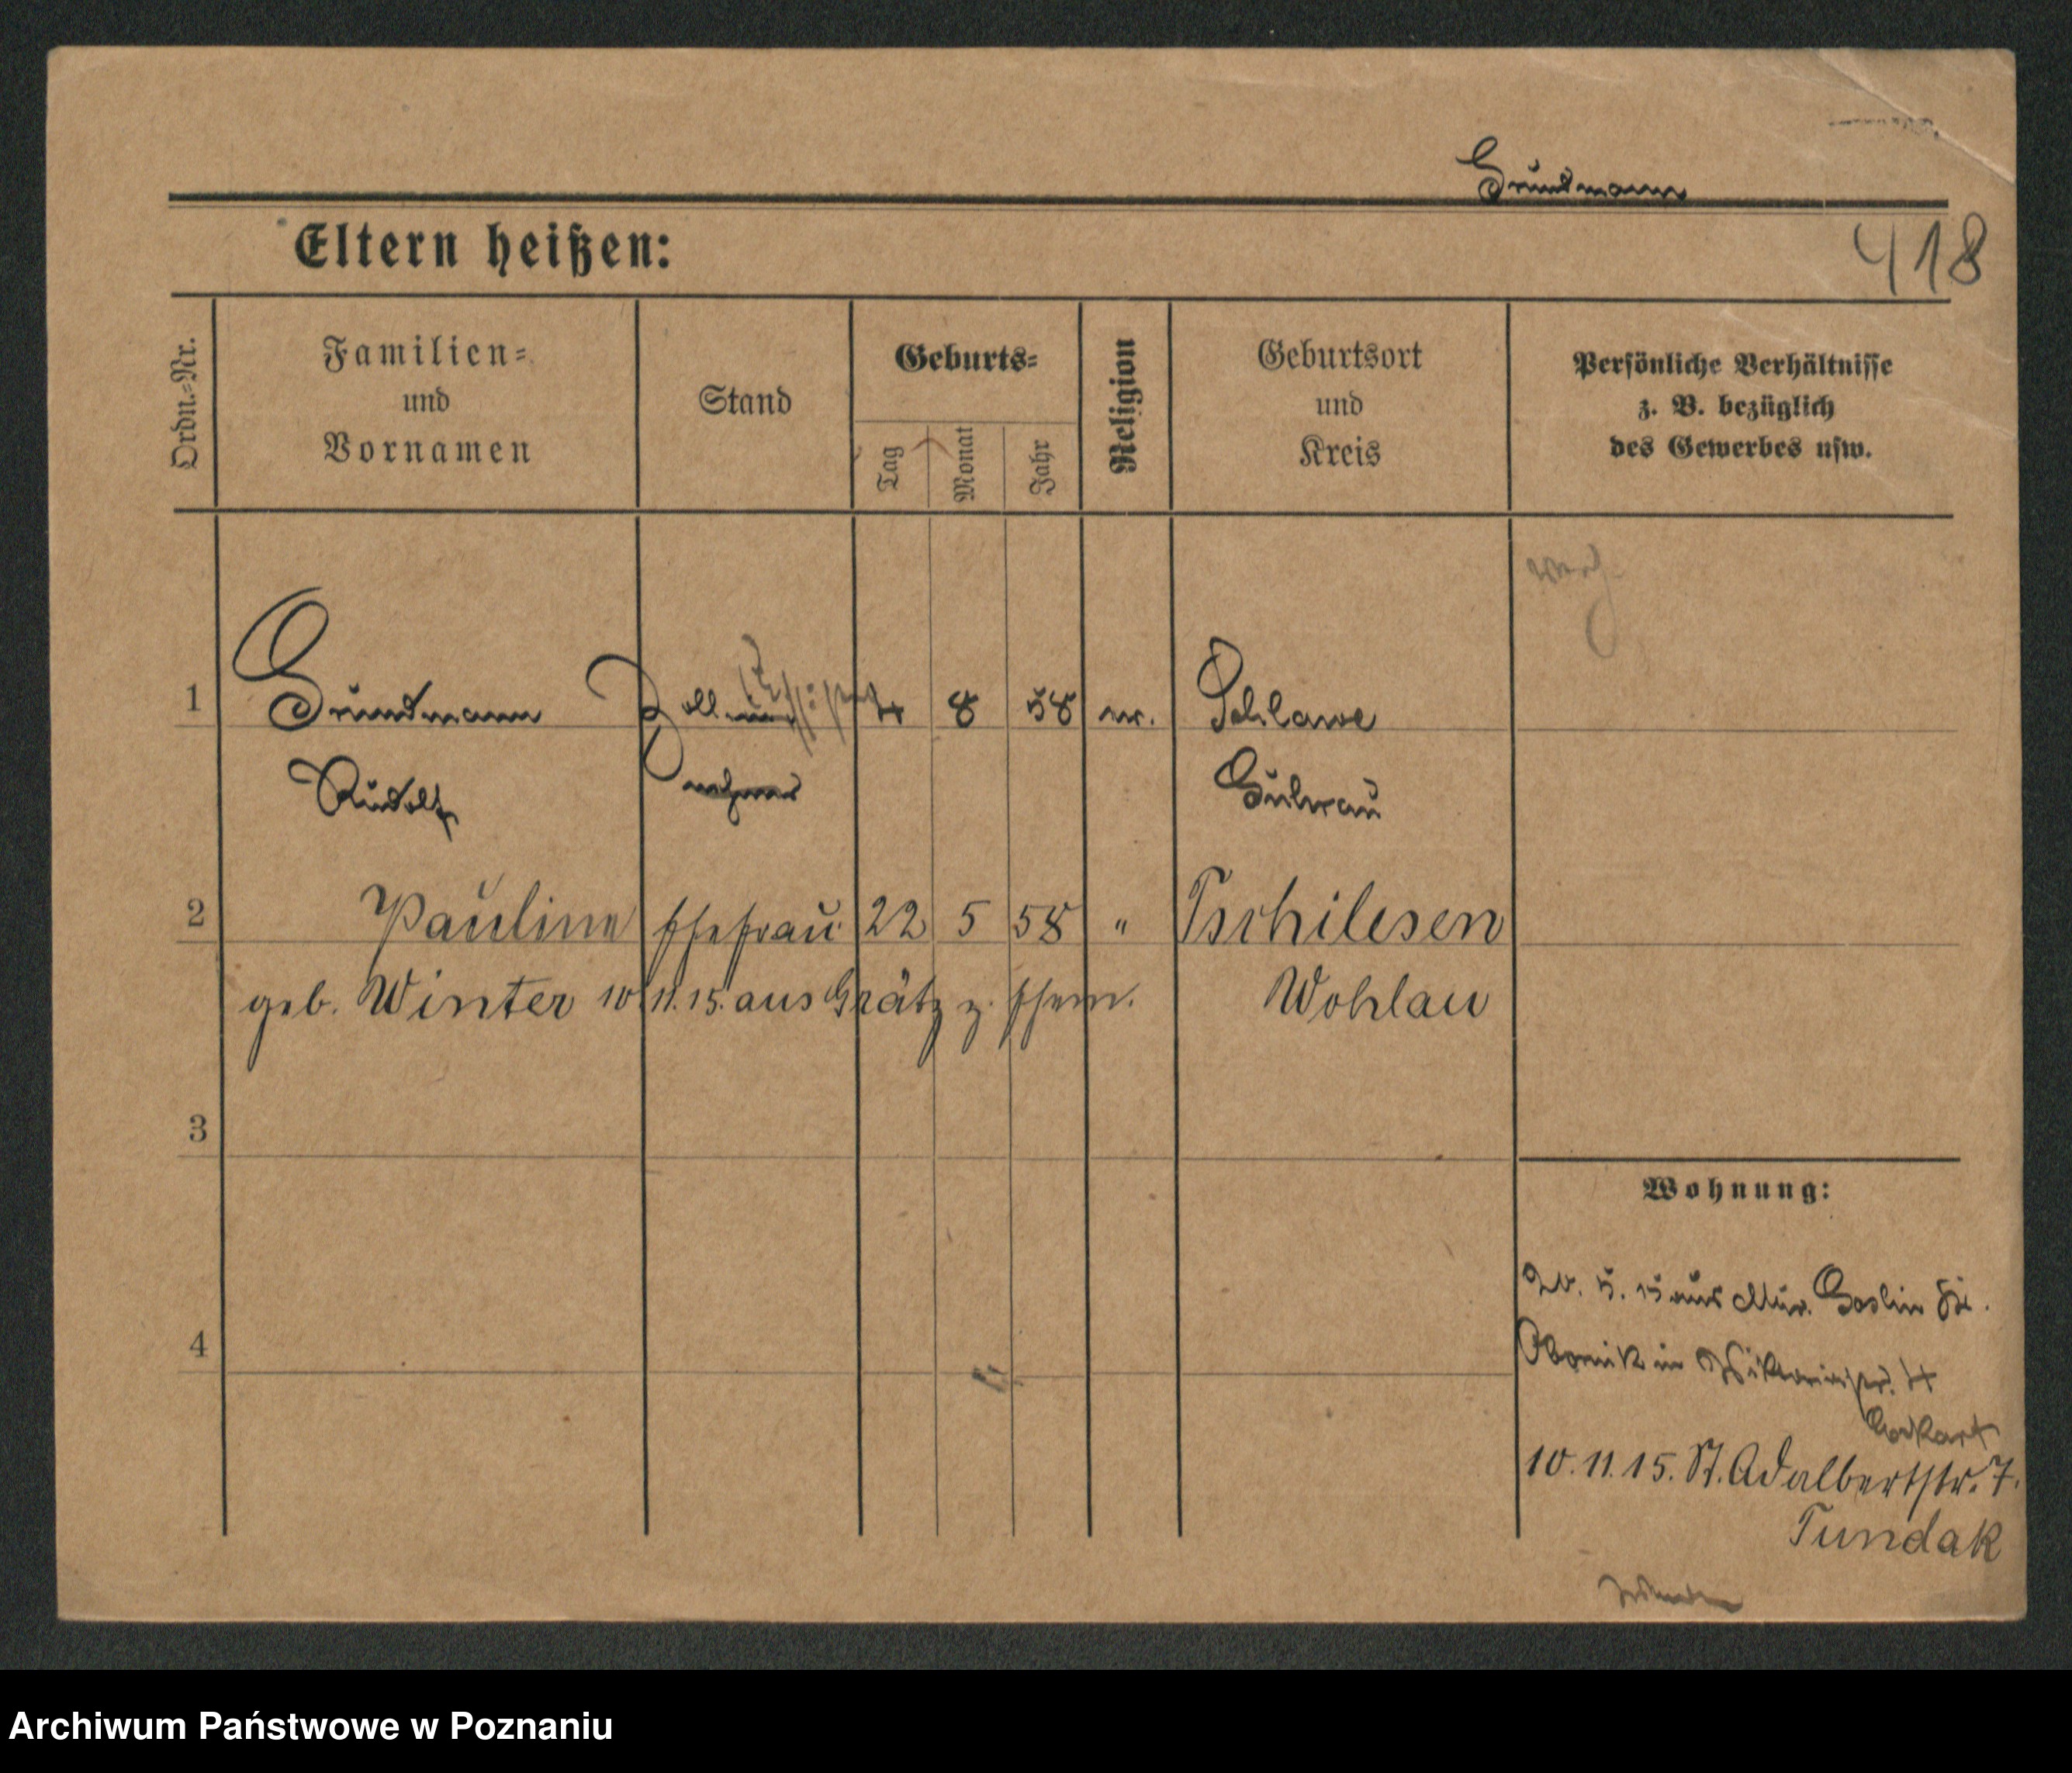 Grundmann
Eltern heißen:
418
Ordn.=Nr.
Familien=
und
Vornamen
Stand
Geburts=
Tag
Monat
Jahr
Religion
Geburtsort
und
Kreis
Persönliche Verhältnisse
z. B. bezüglich
des Gewerbes usw.
1
Grundmann 4 8 58 ev. Schlawe
Rudolf Guhrau
2
Pauline Ehefrau 22 5 58 " Tschilesen
geb. Winter 10.11.15. aus Grätz z. Ehem. Wohlau
3
Wohnung:
4
20. 5. 15 aus Mur. Goslin Kr.
Obornik in Viktoriastr. 4
10.11.15. St. Adalbertstr. 7.
Tundak
Archiwum Państwowe w Poznaniu